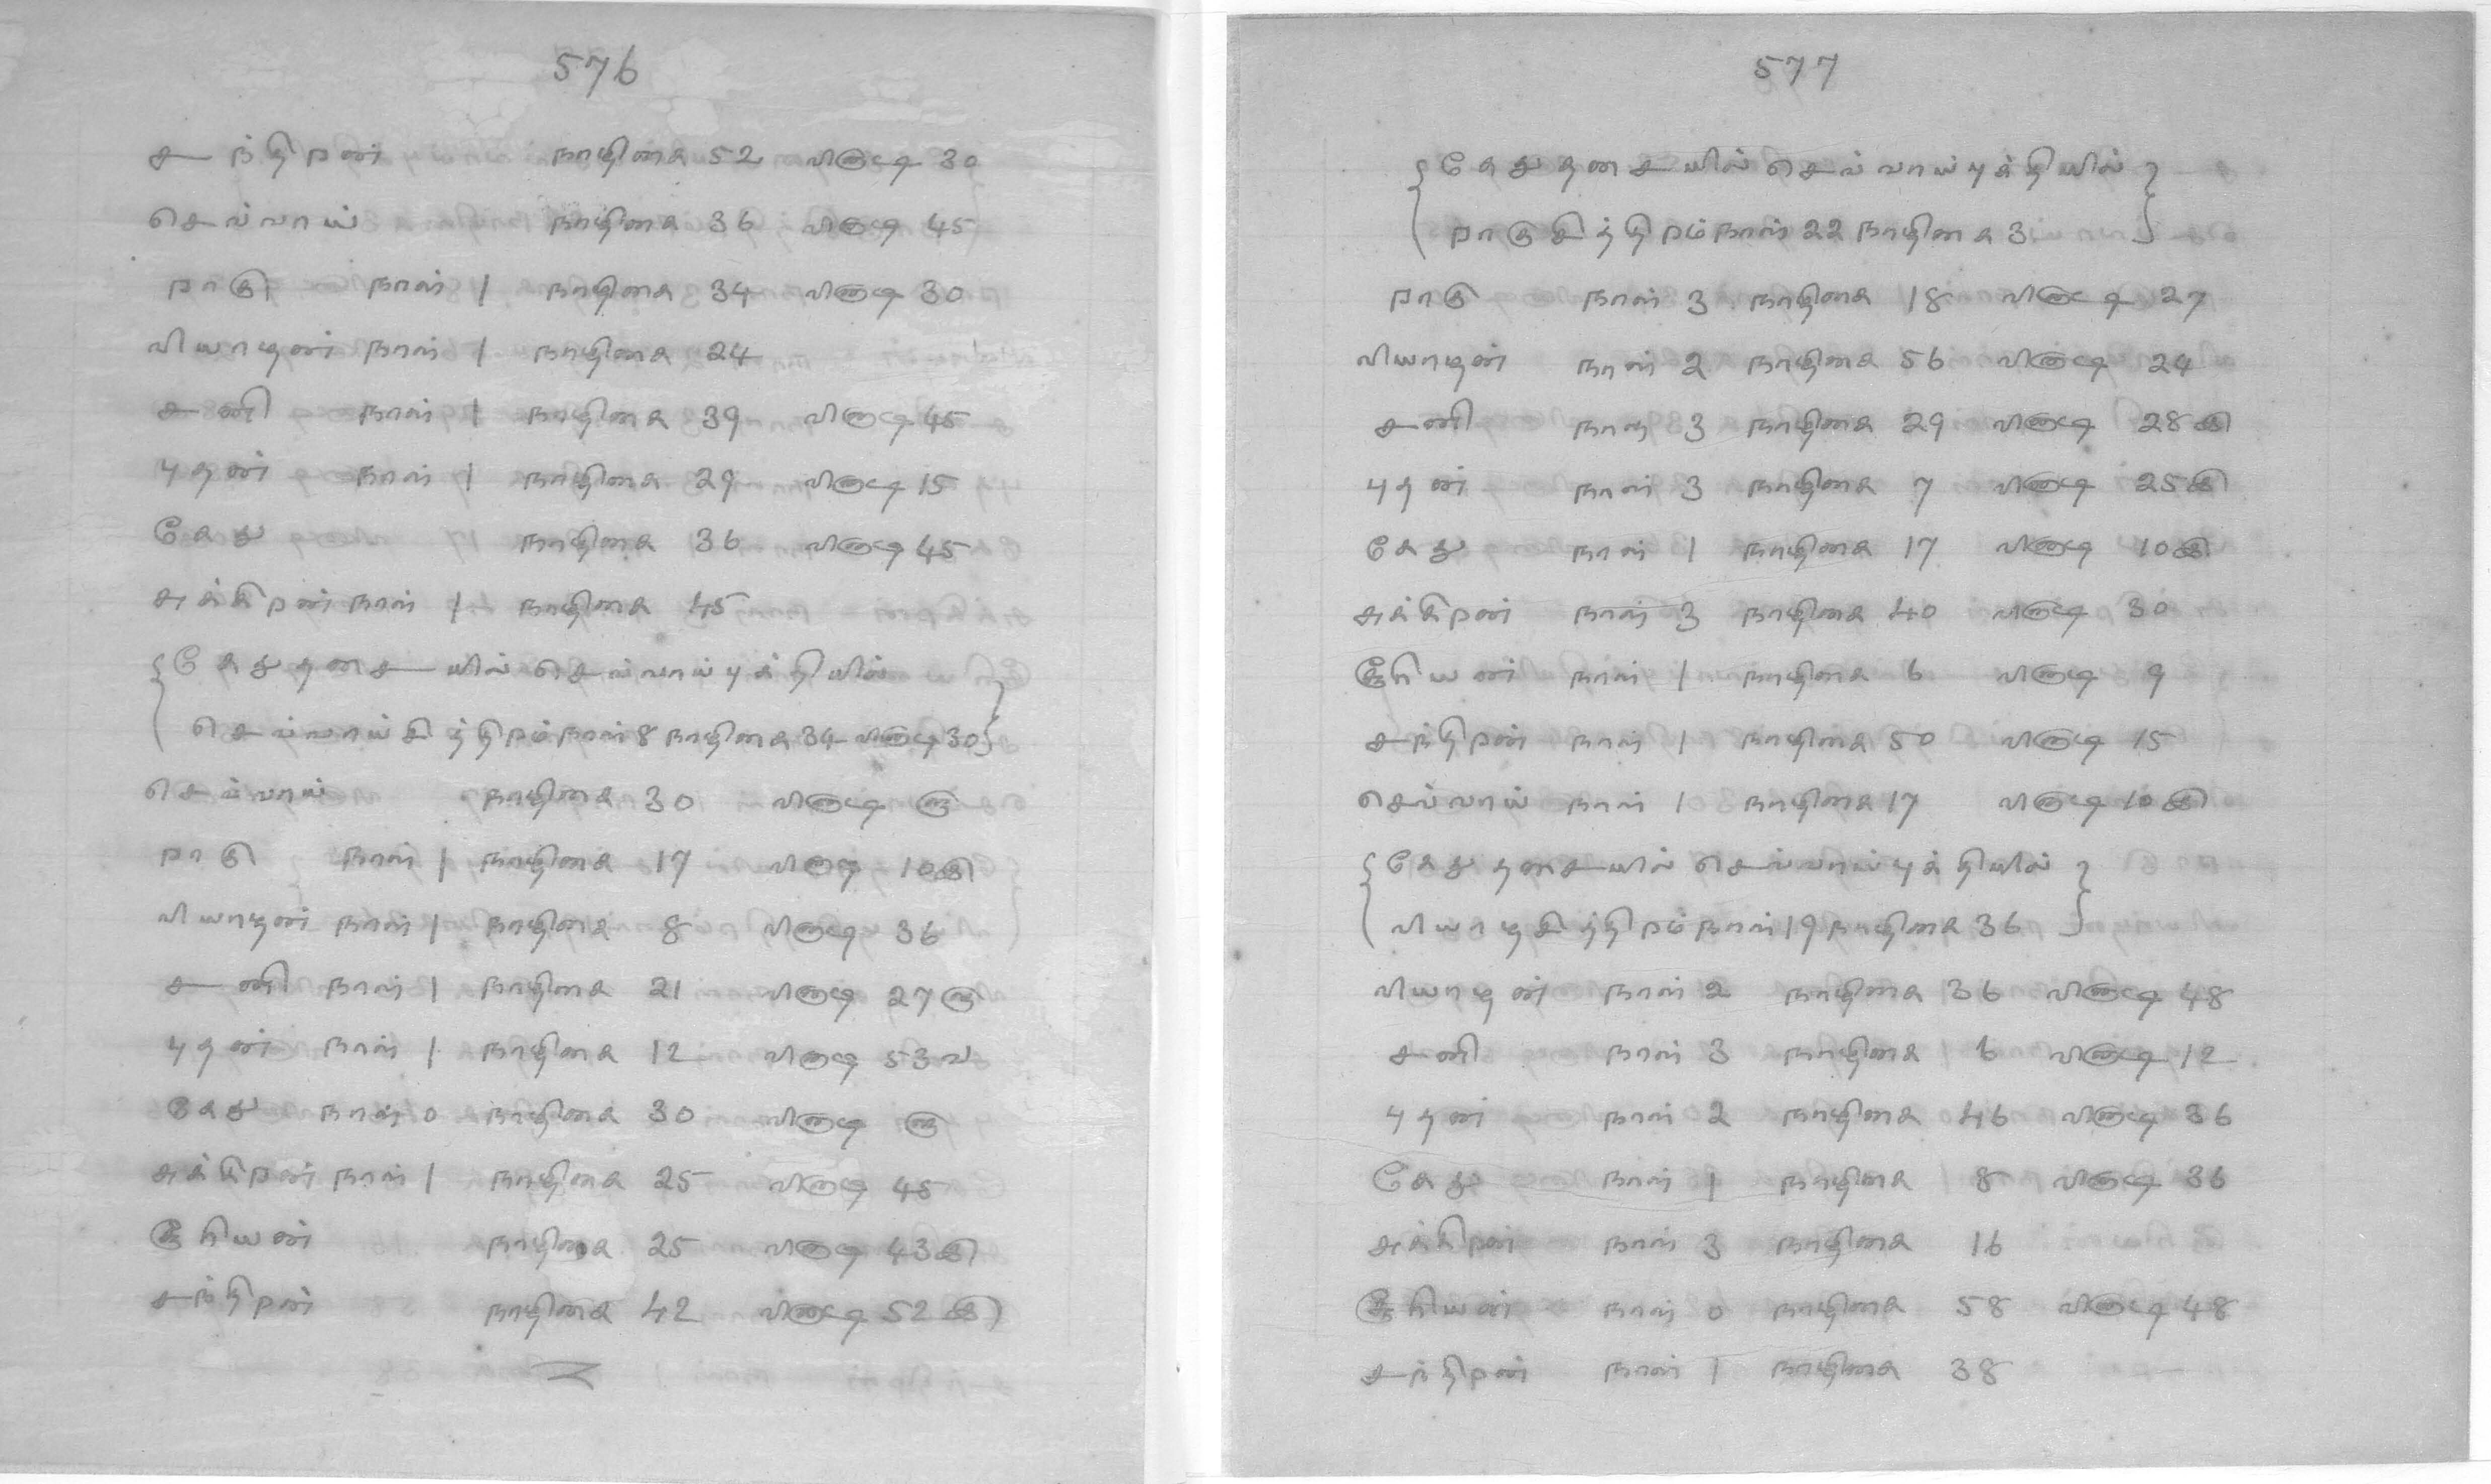 576
சந்திறன் நாழிகை 52 விநாடி 30
செவ்வாய் நாழிகை 36 விநாடி 45
றாகு நாள் 1 நாழிகை 34 விநாடி 30
வியாழன் நாள் 1 நாழிகை 24
சனி நாள் 1 நாழிகை 39 விநாடி 45
புதன் நாள் 1 நாழிகை 29 விநாடி 15
கேது நாழிகை 36 விநாடி 45
சுக்கிறன் நாள் 1 நாழிகை 45
{கேது தசையில் செவ்வாய் புக்தியில்
செவ்வாய் சித்திறம் நாள் 8 நாழிகை 34 விநாடி 30}
செவ்வாய் நாழிகை 30 விநாடி
றாகு நாள் 1 நாழிகை 17 விநாடி 10
வியாழன் நாள் 1 நாழிகை 8 விநாடி 36
சனி நாள் 1 நாழிகை 21 விநாடி 27
புதன் நாள் 1 நாழிகை 12 விநாடி 53
கேது நாள் 0 நாழிகை 30 விநாடி
சுக்கிறன் நாள் 1 நாழிகை 25 விநாடி 45
சூரியன் நாழிகை 25 விநாடி 43
சந்திறன் நாழிகை 42 விநாடி 52
577
{கேது தசையில் செவ்வாய் புக்தியில்
றாகு சித்திறம் நாள் 22 நாழிகை 3}
றாகு நாள் 3 நாழிகை 18 விநாடி 27
வியாழன் நாள் 2 நாழிகை 56 விநாடி 24
சனி நாள் 3 நாழிகை 29 விநாடி 28
புதன் நாள் 3 நாழிகை 7 விநாடி 25
கேது நாள் 1 நாழிகை 17 விநாடி 10
சுக்கிறன் நாள் 3 நாழிகை 40 விநாடி 30
சூரியன் நாள் 1 நாழிகை 6 விநாடி 9
சந்திறன் நாள் 1 நாழிகை 50 விநாடி 15
செவ்வாய் நாள் 1 நாழிகை 17 விநாடி 10
{கேது தசையில் செவ்வாய் புக்தியில்
வியாழ சித்திறம் நாள் 19 நாழிகை 36}
வியாழன் நாள் 2 நாழிகை 36 விநாடி 48
சனி நாள் 3 நாழிகை 6 விநாடி 12
புதன் நாள் 2 நாழிகை 46 விநாடி 36
கேது நாள் 1 நாழிகை 8 விநாடி 36
சுக்கிறன் நாள் 3 நாழிகை 16
சூரியன் நாள் 0 நாழிகை 58 விநாடி 48
சந்திறன் நாள் 1 நாழிகை 38